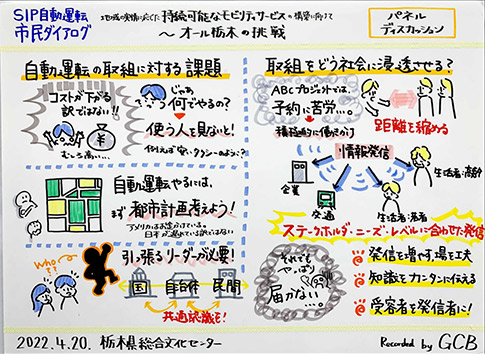 SIP自動運転
市民ダイアログ
地域の実情に応じた 持続可能なモビリティサービスの構築に向けて
～オール栃木の挑戦
パネル
ディスカッション
自動運転の取組に対する課題
コストが下がる
訳ではない!!
むしろ高い…
じゃあ
何でやるの?
使う人を見ないと!
例えば安いタクシーのように?
自動運転やるには、
まず都市計画考えよう!
アメリカは
日本が遅れている訳ではない
Who??
引っ張るリーダーが必要!
国
自治体
民間
共通認識を!
取組をどう社会に浸透させる?
ABCプロジェクトでは、
予約に苦労…
積極的に働きかけ
距離を縮める
情報発信
企業
交通
生活者:若者
生活者:高齢
ステークホルダ・ニーズ・レベルに合わせた発信
それでも
やっぱり
届かない…
発信を増やす場を工夫
知識をカンタンに伝える
受容者を発信者に!
2022.4.20. 栃木県総合文化センター
Recorded by GCB